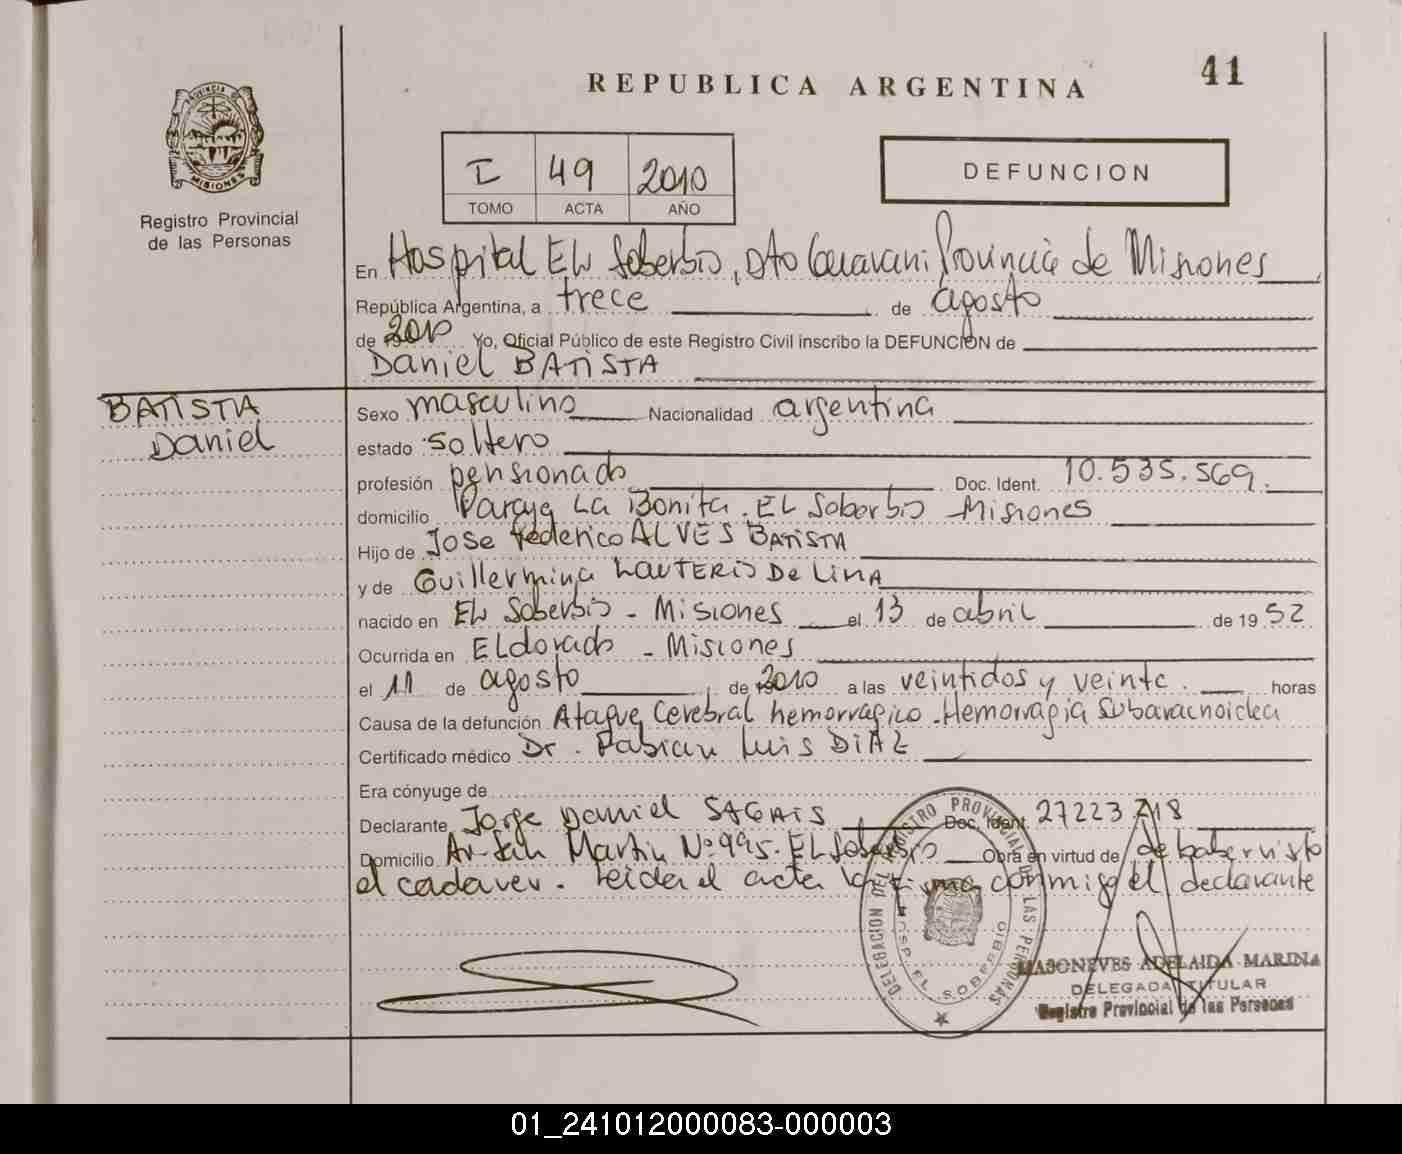 41
REPUBLICA ARGENTINA
PROVINCIA DE
MISIONES
Registro Provincial
de las Personas
I 49 2010
TOMO ACTA AÑO
DEFUNCION
En Hospital El Soberbio, Dto Guarani Provincia de Misiones
República Argentina, a trece de agosto
de 2010 Yo, Oficial Público de este Registro Civil inscribo la DEFUNCION de
Daniel BATISTA
BATISTA
Daniel
Sexo masculino Nacionalidad argentina
estado soltero
profesión pensionado Doc. Ident. 10.535.569.
domicilio Paraje La Bonita. EL Soberbio - Misiones
Hijo de Jose Federico ALVES BATISTA
y de Guillermina LAUTERIO De LIMA
nacido en EL Soberbio - Misiones el 13 de abril de 1952
Ocurrida en Eldorado - Misiones
el 11 de agosto de 2010 a las veintidos y veinte. horas
Causa de la defunción Ataque Cerebral hemorragico. Hemorragia Subaracnoidea
Certificado médico Dr. Fabian Luis DIAZ
Era cónyuge de
Declarante Jorge Daniel Doc. Ident. 27223718
Domicilio Av. San Martin Nº 995. EL Soberbio Obra en virtud de de haber visto
el cadaver. Leida el acta la firma conmigo el declarante
DELEGACION DEL REGISTRO PROVINCIAL DE LAS PERSONAS
HOSP. EL SOBERBIO
MASONEVES ADELAIDA MARINA
DELEGADA TITULAR
Registro Provincial de las Personas
01_241012000083-000003